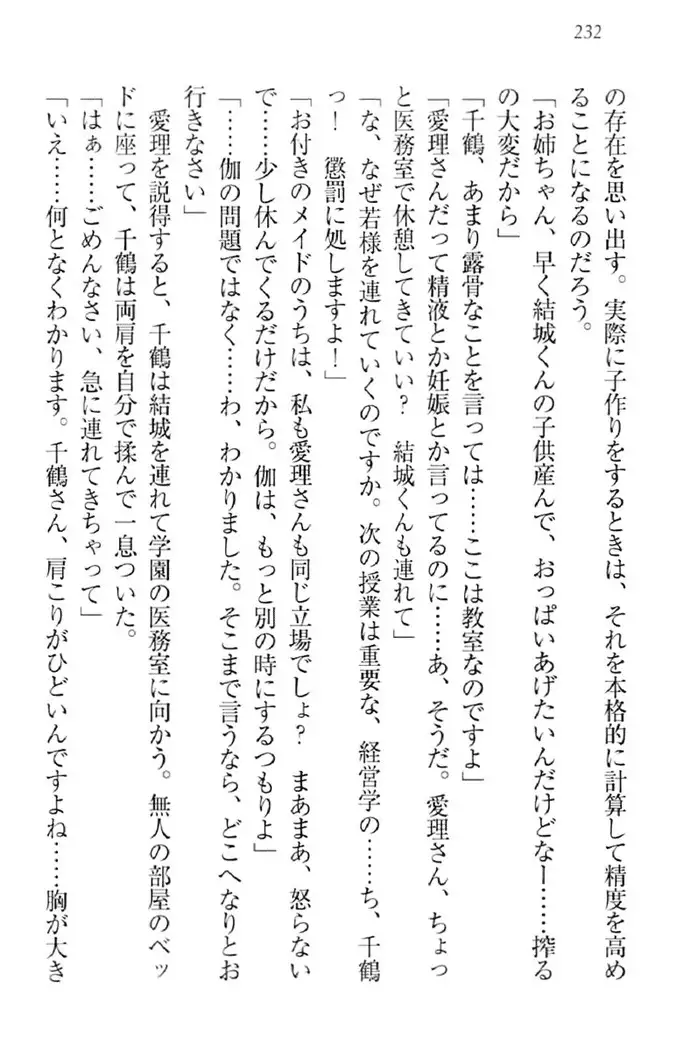 232
の存在を思い出す。実際に子作りをするときは、それを本格的に計算して精度を高め
ることになるのだろう。
「お姉ちゃん、早く結城くんの子供産んで、おっぱいあげたいんだけどなー……搾る
の大変だから」
「千鶴、あまり露骨なことを言っては……ここは教室なのですよ」
「愛理さんだって精液とか妊娠とか言ってるのに……あ、そうだ。愛理さん、ちょっ
と医務室で休憩してきていい?　結城くんも連れて」
「な、なぜ若様を連れていくのですか。次の授業は重要な、経営学の……ち、千鶴
っ!　懲罰に処しますよ!」
「お付きのメイドのうちは、私も愛理さんも同じ立場でしょ?　まあまあ、怒らない
で……少し休んでくるだけだから。伽は、もっと別の時にするつもりよ」
「……伽の問題ではなく……わ、わかりました。そこまで言うなら、どこへなりとお
行きなさい」
　愛理を説得すると、千鶴は結城を連れて学園の医務室に向かう。無人の部屋のベッ
ドに座って、千鶴は両肩を自分で揉んで一息ついた。
「はぁ……ごめんなさい、急に連れてきちゃって」
「いえ……何となくわかります。千鶴さん、肩こりがひどいんですよね……胸が大き